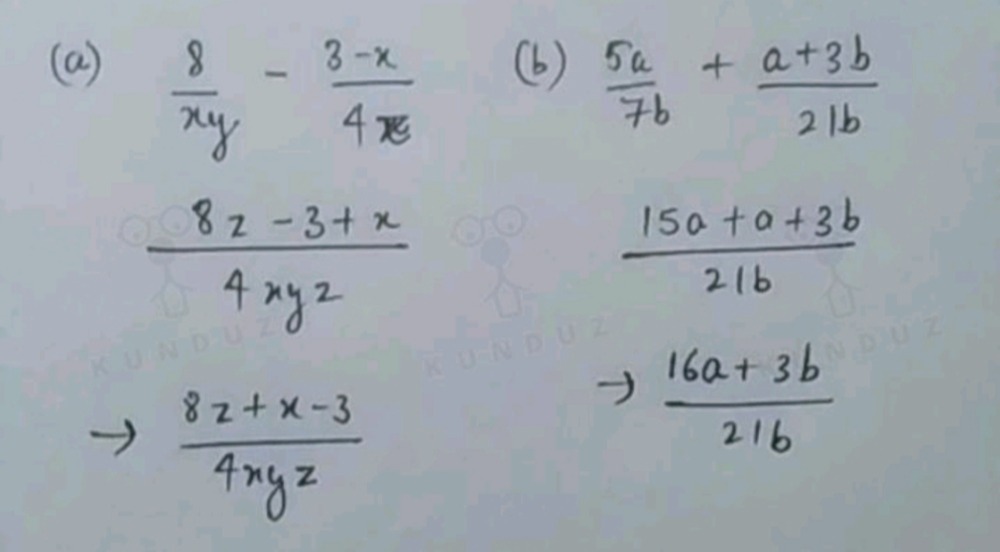 (a) 8/xy - 3-x/4
8z - 3 + x / 4xyz
→ 8z + x - 3 / 4xyz
(b) 5a/7b + a+3b/21b
15a + a + 3b / 21b
→ 16a + 3b / 21b
KUNDUZ
KUNDUZ
NDUZ